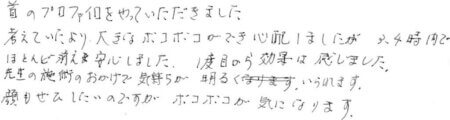 首のプロファイロをやっていただきました
考えていたより大きなボコボコができ心配しましたが 3、4時間で
ほとんど消え安心しました。1度目から効果は感じました。
先生の施術のおかげで気持ちが明るくいられます。
顔もぜひしたいのですがボコボコが気になります。